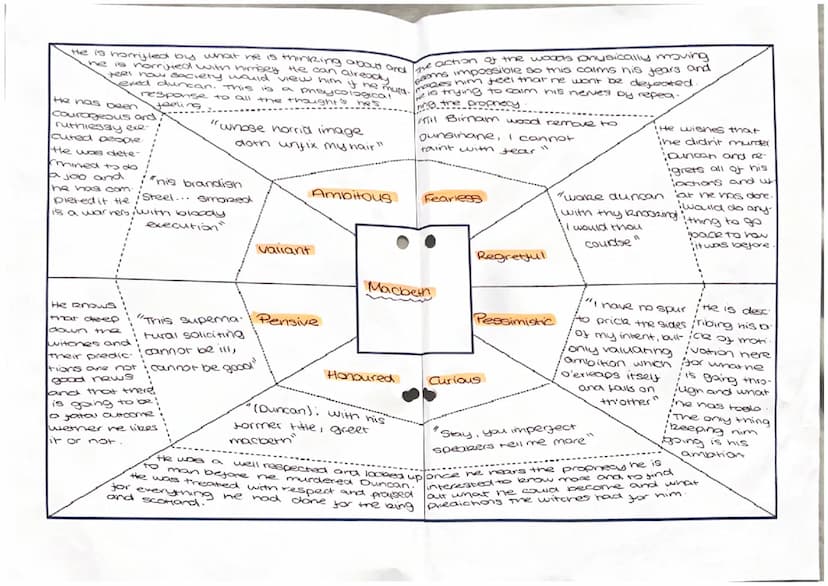 He is horryfed by what he is thinking about and
he is horryfed with himself. He can already
feel how society would view him if he murd-
ered duncan. This is a phsycological
response to all the thoughts he's
feeling.
"whose horrid image
doth unfix my hair"
Ambitous
The action of the woods physically moving
seems impossible so this calms his fears and
makes him feel that he wont be defeated.
He is trying to calm his nerves by repea-
ting the prophecy.
"Till Birnam wood remove to
dunsinane, I cannot
taint with fear"
Fearless
He has been
courageous and
ruthlessly exe-
cuted people.
He was deter-
mined to do
a job and
he has com-
pleted it. He
is a warrior.
"his brandish
Steel... smoked
with bloody
execution"
Valiant
He wishes that
he didn't murder
Duncan and re-
grets all of his
actions and wh-
at he has done.
would do any-
thing to go
back to how
it was before.
"wake duncan
with thy knocking
I would thou
couldse"
Regretful
Macbeth
He knows
that deep
down the
witches and
their predic-
tions are not
good news
and that there
is going to be
a fatal outcome
wether he likes
it or not.
"This superna-
tural soliciting
cannot be ill,
cannot be good"
Pensive
Pessimistic
"I have no spur
to prick the sides
of my intent, but
only valuating
ambition which
o'erleaps itself
and falls on
th'other"
He is desc-
ribing his la-
ck of moti-
vation here
for what he
is going thro-
ugh and what
he has to do.
The only thing
keeping him
going is his
ambtion
Honoured
"(Duncan): with his
former title, greet
macbeth"
He was a well respected and looked up
to man before he murdered Duncan.
He was treated with respect and praised
for everything he had done for the king
and scotland.
Curious
"Stay, you imperfect
speakers tell me more"
Once he hears the prophecy he is
interested to know more and to find
out what he could become and what
predictions the witches had for him.